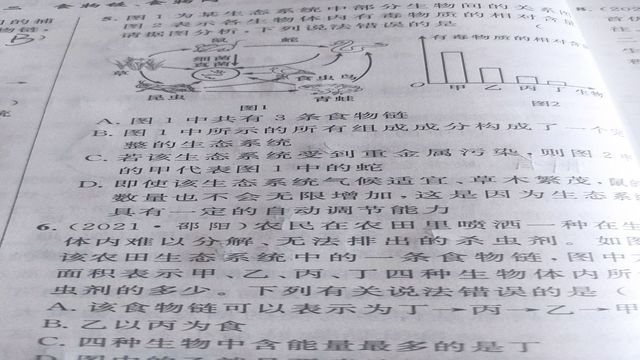 三 食物链、食物网
5. 图1为某生态系统中部分生物间的关系
图2表示各生物体内有毒物质的相对含量
请据图分析,下列说法错误的是
鼠 蛇
细菌
真菌
草
食虫鸟
昆虫 青蛙
图1
有毒物质的相对含
O 甲 乙 丙 丁 生物
图2
A. 图1中共有3条食物链
B. 图1中所示的所有组成成分构成了一个
整的生态系统
C. 若该生态系统受到重金属污染,则图2
的甲代表图1中的蛇
D. 即使该生态系统气候适宜、草木繁茂,鼠
数量也不会无限增加,这是因为生态系
具有一定的自动调节能力
6. (2021·邵阳)农民在农田里喷洒一种在生
体内难以分解、无法排出的杀虫剂。如图
该农田生态系统中的一条食物链,图中
面积表示甲、乙、丙、丁四种生物体内所
虫剂的多少。下列有关说法错误的是(
A. 该食物链可以表示为丁→丙→乙→甲
B. 乙以丙为食
C. 四种生物中含能量最多的是丁